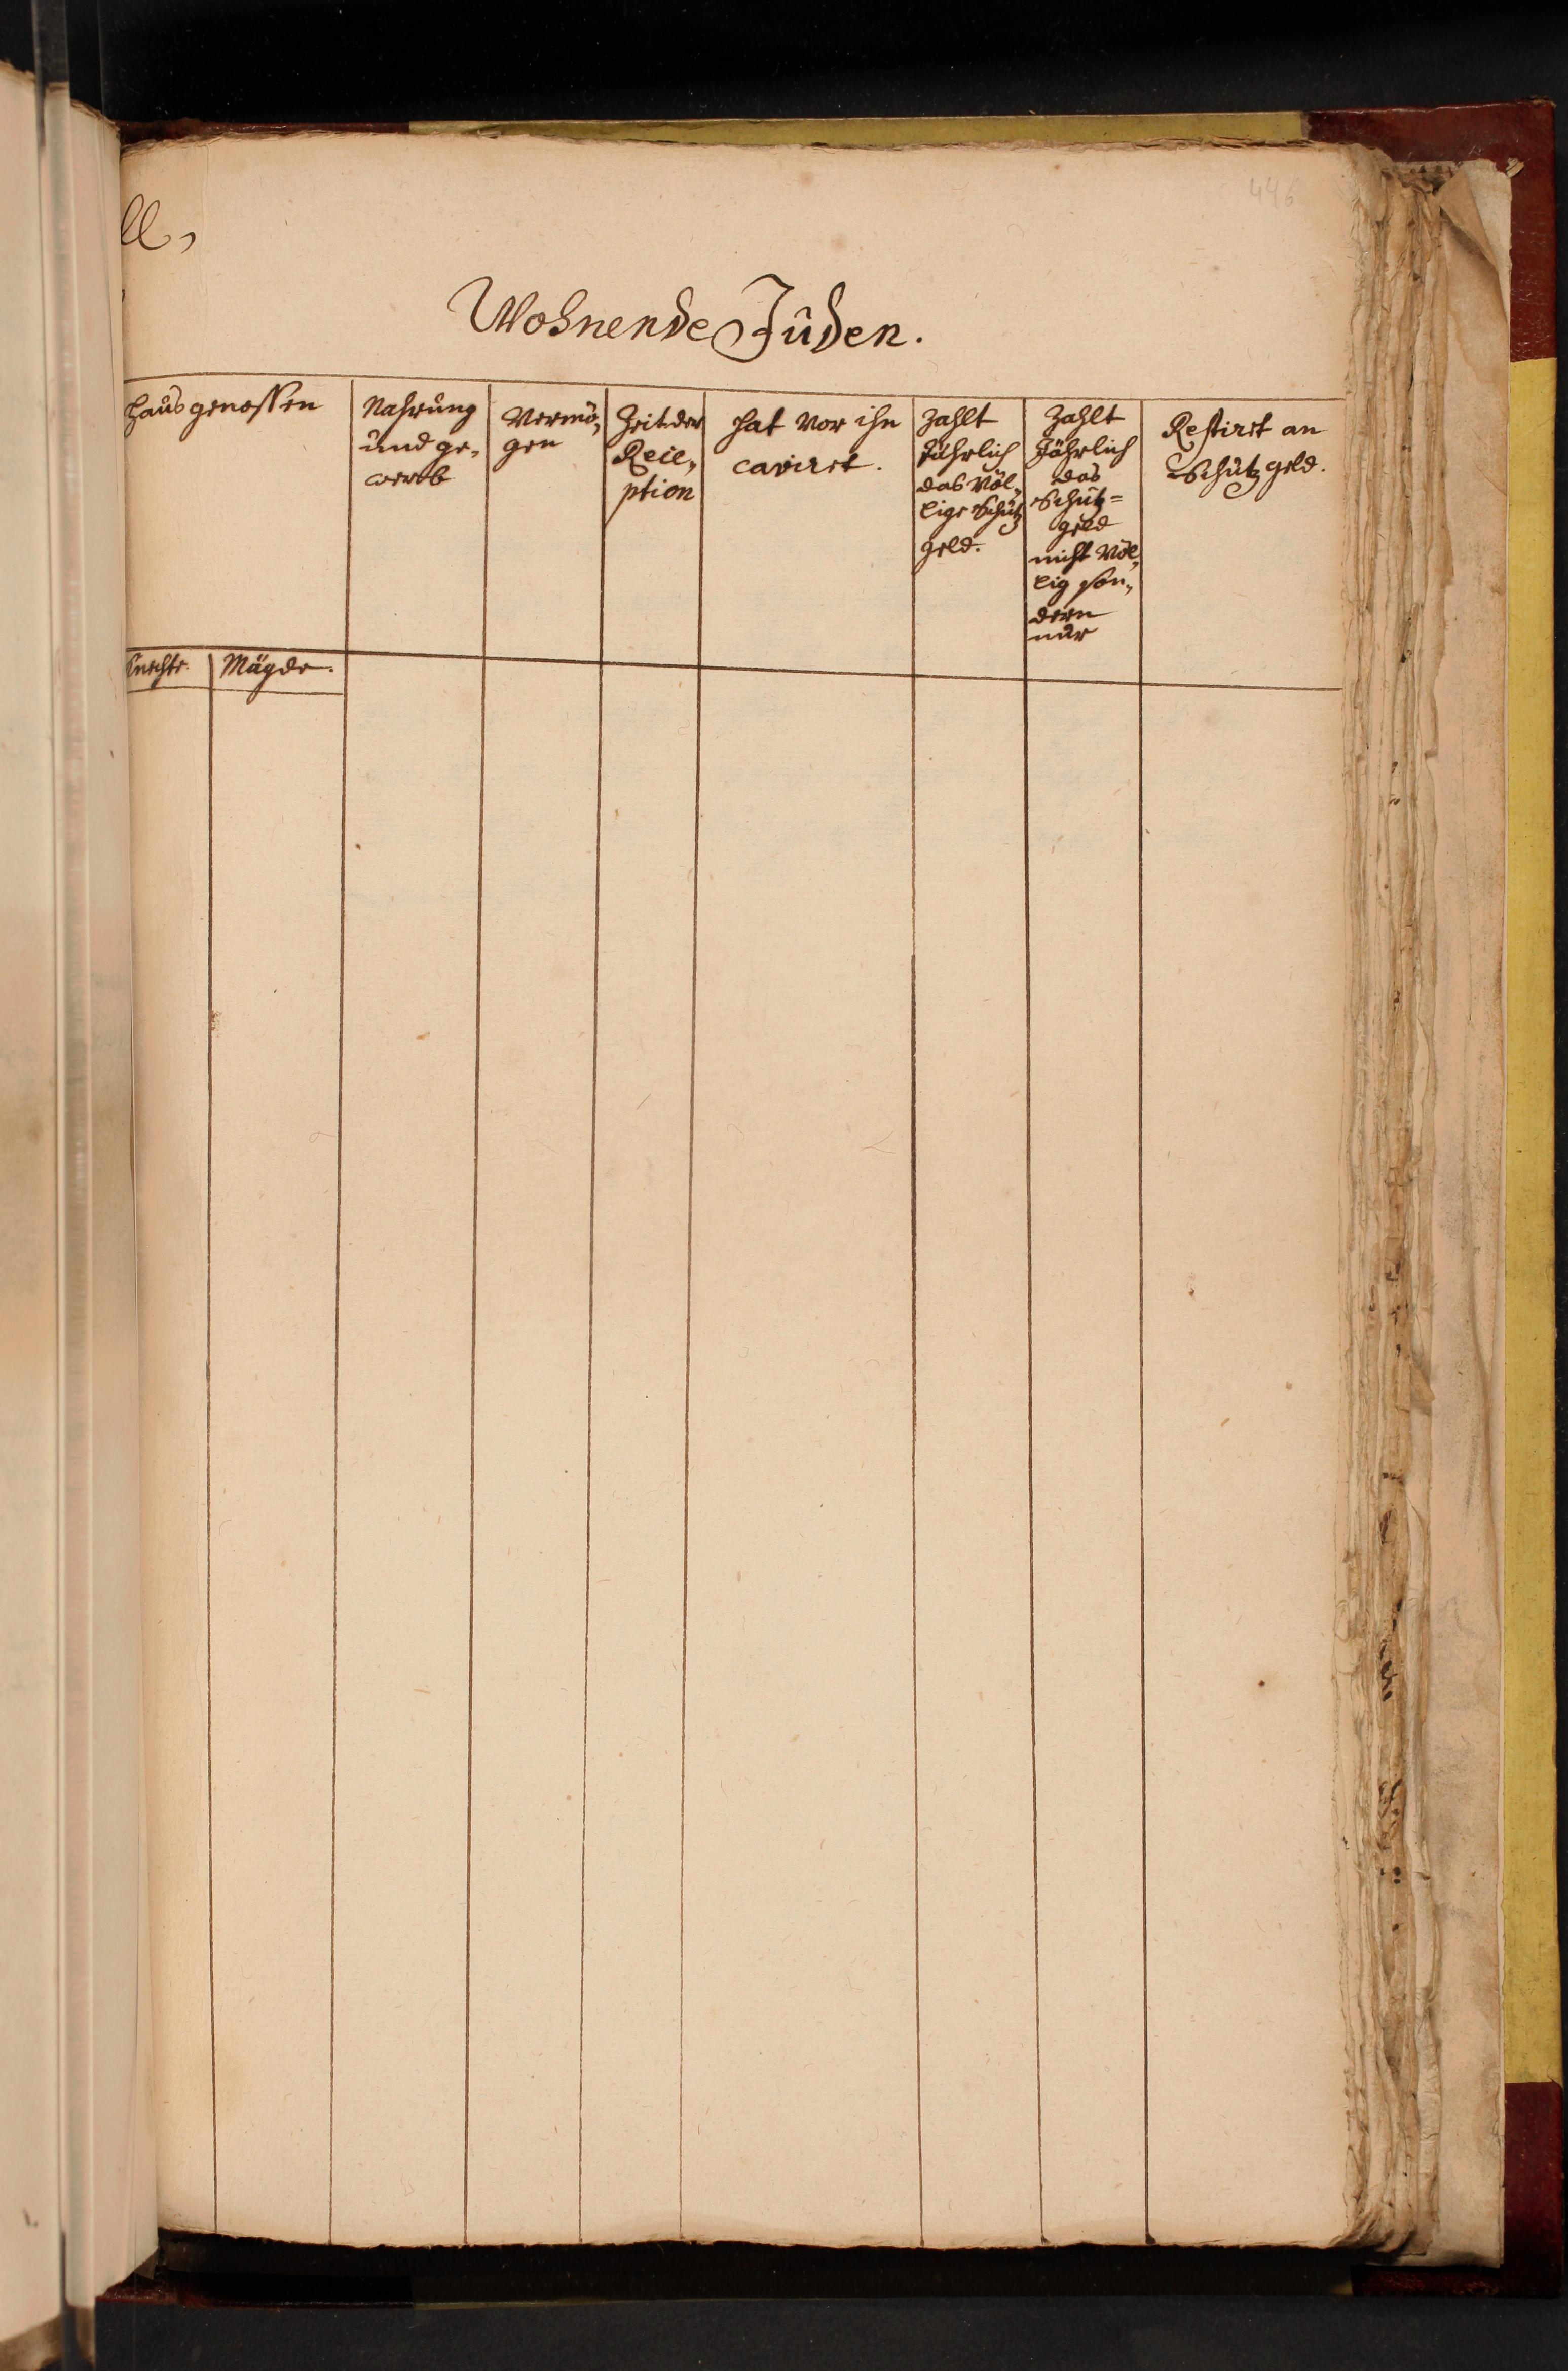 446
ll,
Wohnende Juden.
Hausgenossen
Nahrung
und ge,
werb
Vermö,
gen
Zeit der
Rece,
ption
hat vor ihn
caviret.
Zahlt
Jährlich
das völ,
lige Schutz
geld.
Zahlt
Jährlich
das
Schutz=
geld
nicht völ,
lig son,
dern
nur
Restiret an
Schutz geld.
Knechte.
Mägde.